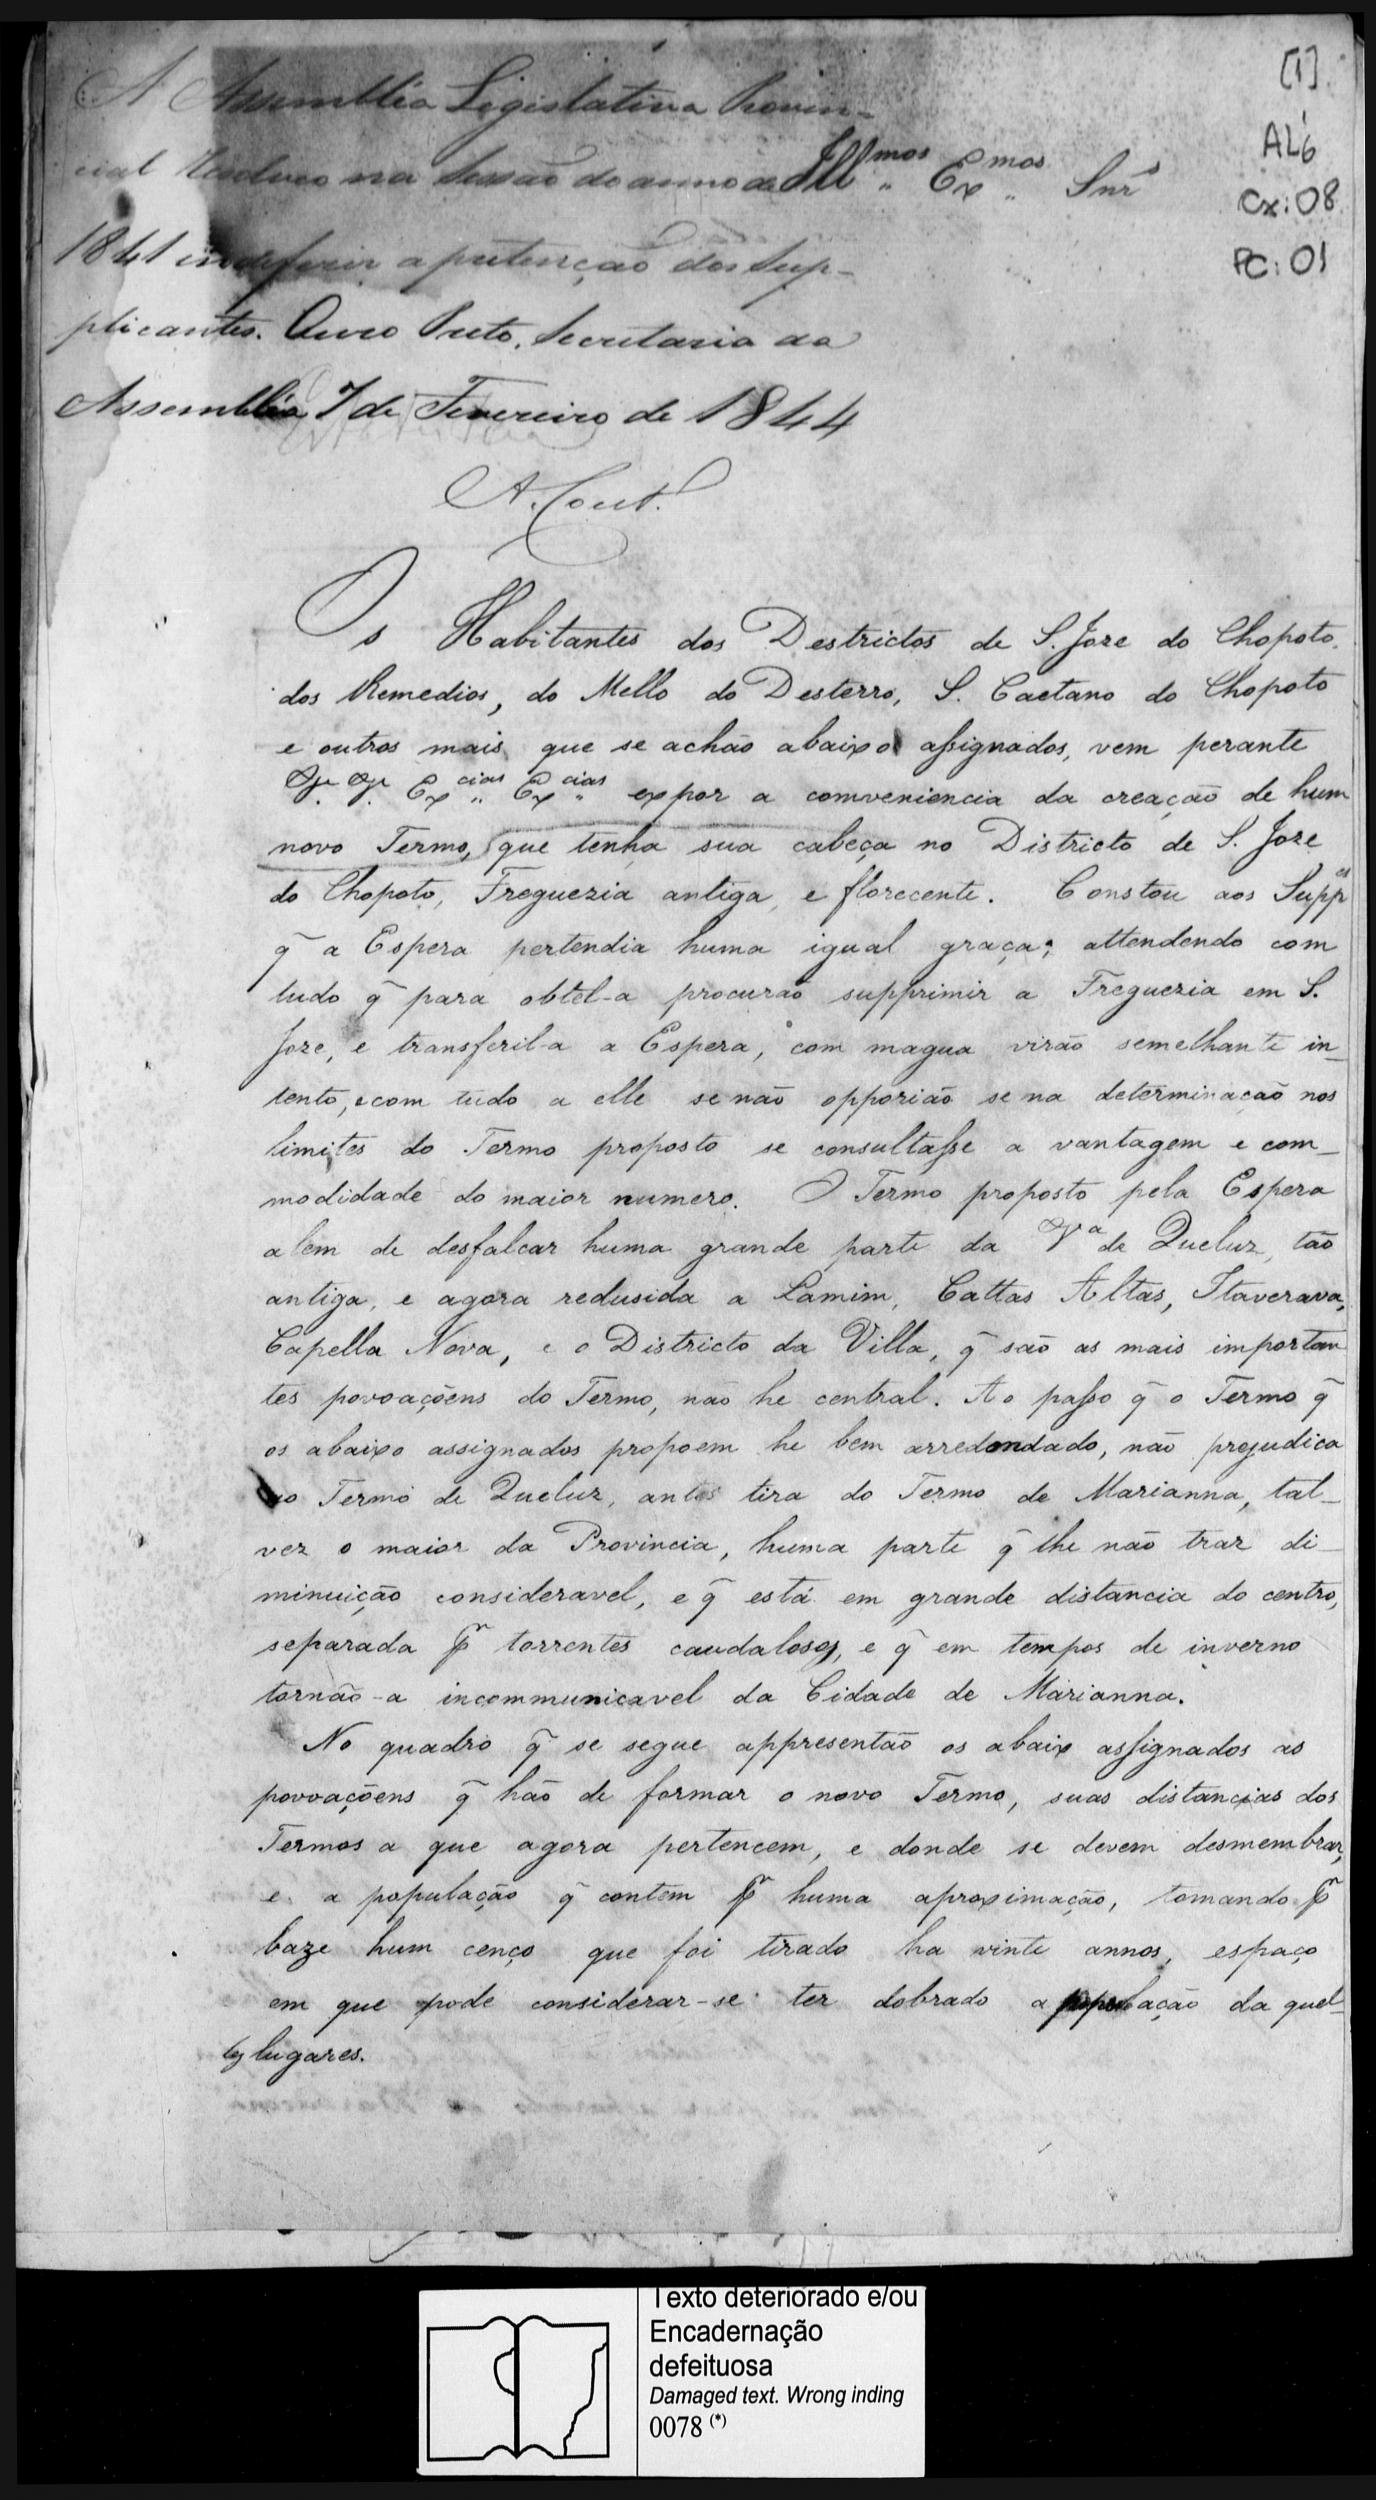 [1]
AL6
Cx: 08
PC: 01
A Assemblea Legislativa Provin-
cial resolveo na Sessão do anno de
Illmos Exmos Snrs
1841 indeferir a pretenção dos Sup-
plicantes. Ouro Preto, Secretaria da
Assemblea 7 de Fevereiro de 1844
A. Cout.
Os Habitantes dos Destrictos de S. Joze do Chopoto,
dos Remedios, do Mello do Desterro, S. Caetano do Chopoto
e outros mais que se achão abaixo assignados, vem perante
VV. Excias Excias expor a comveniencia da creação de hum
novo Termo, que tenha sua cabeça no Districto de S. Joze
do Chopoto, Freguezia antiga, e florecente. Constou aos Suppes
q̃ a Espera pertendia huma igual graça; attendendo com
tudo q̃ para obtel-a procurão supprimir a Freguezia em S.
Joze, e transferil-a a Espera, com magua virão semelhante in-
tento, e com tudo a elle se não opporião se na determinação nos
limites do Termo proposto se consultasse a vantagem e com-
modidade do maior numero. O Termo proposto pela Espera
alem de desfalcar huma grande parte da Va de Queluz, tão
antiga, e agora redusida a Lamim, Cattas Altas, Itaverava,
Capella Nova, e o Districto da Villa, q̃ são as mais importan
tes povoaçõens do Termo, não he central. Ao passo q̃ o Termo q̃
os abaixo assignados propoem he bem arredondado, não prejudica
ao Termo de Queluz, antes tira do Termo de Marianna, tal-
vez o maior da Provincia, huma parte q̃ lhe não traz di-
minuição consideravel, e q̃ está em grande distancia do centro,
separada pr torrentes caudalosos, e q̃ em tempos de inverno
tornão-a incommunicavel da Cidade de Marianna.
No quadro q̃ se segue appresentão os abaixo assignados as
povoaçõens q̃ hão de formar o novo Termo, suas distancias dos
Termos a que agora pertencem, e donde se devem desmembrar,
e a população q̃ contem pr huma aproximação, tomando pr
baze hum cenço que foi tirado ha vinte annos, espaço
em que pode considerar-se ter dobrado a população da quel-
les lugares.
Texto deteriorado e/ou
Encadernação
defeituosa
Damaged text. Wrong inding
0078 (*)